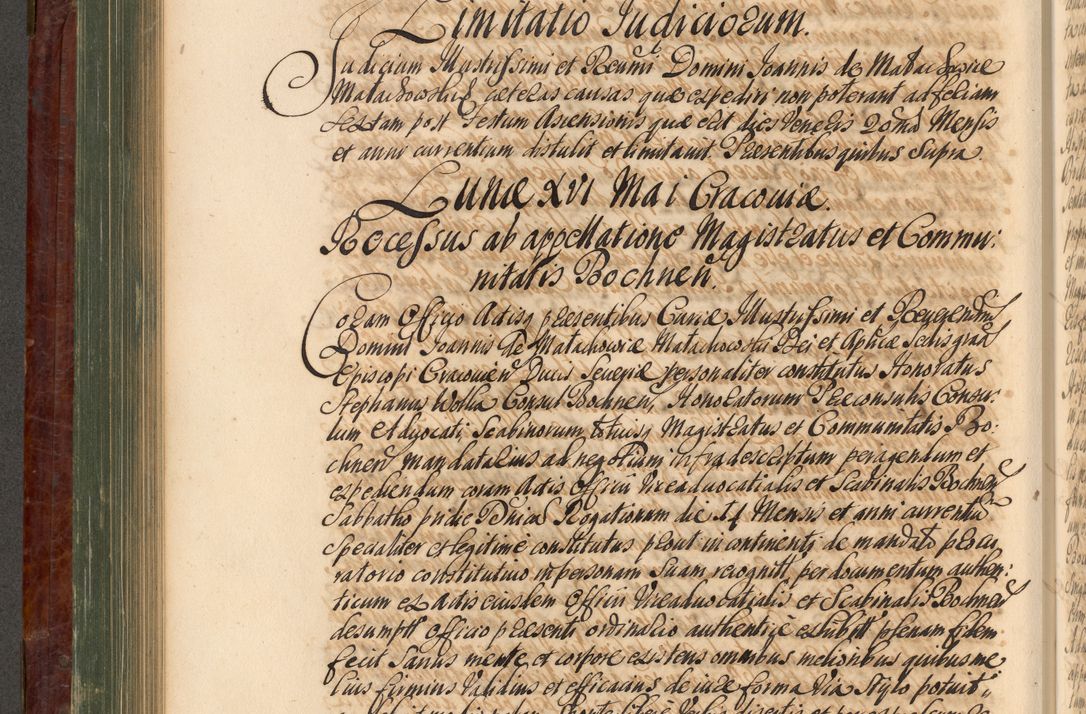 Limitatio Iudiciorum.
Iudicium Illustrissimi et Reumi Domini Joannis de Małachowice
Małachowski cæteras causas quæ expediri non poterant ad feriam
sextam post Festum Ascensionis quæ erit dies Veneris Mensis
et anni currentium distulit et limitauit. Præsentibus quibus Supra.
Lunæ XVI Mai Cracouiæ.
Recessus ab appellatione Magistratus et Commu:
nitatis Bochnen.
Coram Officio Actisq præsentibus Curiæ Illustrissimi et Reuerendmi
Domini Joannis de Małachowice Małachowski Dei et Aplicæ Sedis gratia
Episcopi Cracouien Ducis Seueriæ personaliter constitutus Honoratus
Stephanus Wolla Consul Bochnen, Honoratorum Præconsulis Consu:
lum Aduocati Scabinorum totiusq Magistratus et Communitatis Bo:
chnen mandatarius ad negotium infradescriptum peragendum et
expediendum coram Actis Officii Viceaduocatialis et Scabinalis Bochnen
Sabbatho pridie Dnicæ Rogationum die 14 Mensis et anni currentiu
specialiter et legitime constitutus prout in continenti de mandato procu
ratorio constitutiuo in personam suam recognit per documentum authen:
ticum ex Actis eiusdem Officii Viceaduocatialis et Scabinalis Bochnen
desumptt Officio præsenti ordinario authenticè exhibitt plenam fidem
fecit Sanus mente et corpore existens omnibus melioribus quibus me
lius firmius validius et efficacius de iure forma Via Stylo potuit